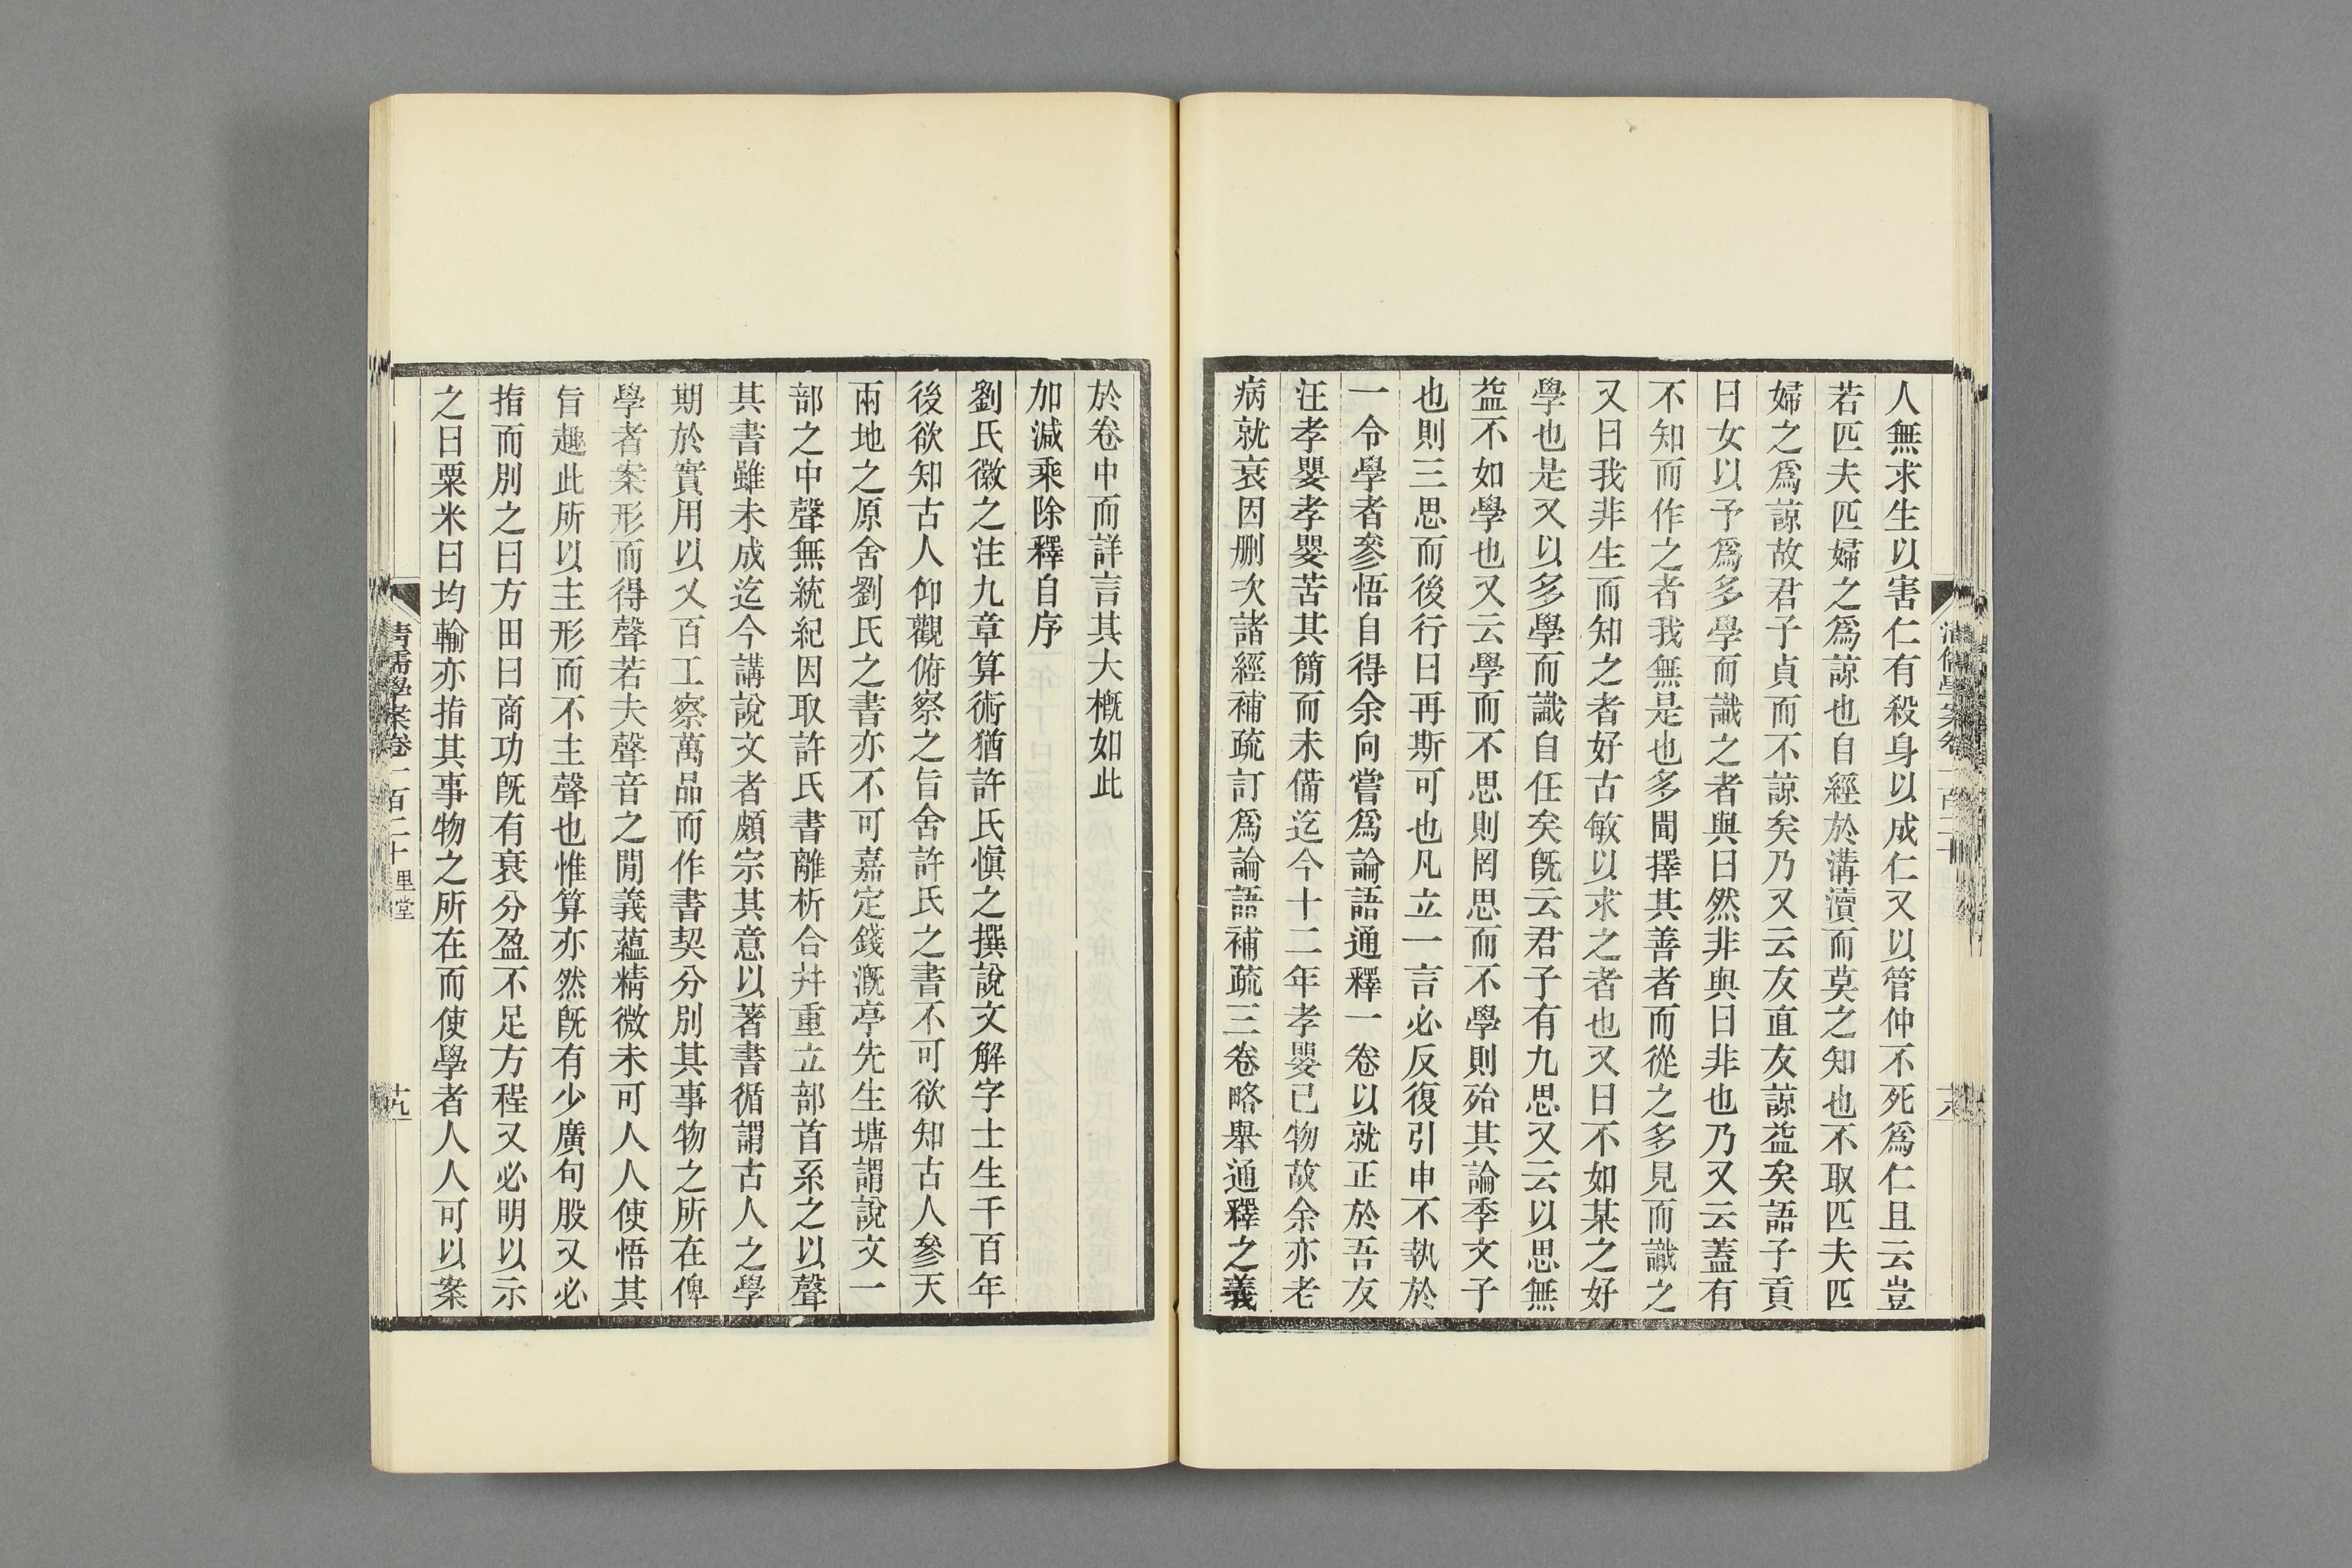 人無求生以害仁有殺身以成仁又以管仲不死爲仁且云豈
若匹夫匹婦之爲諒也自經於溝瀆而莫之知也不取匹夫匹
婦之爲諒故君子貞而不諒矣乃又云友直友諒益矣語子貢
曰女以予爲多學而識之者與曰然非與曰非也乃又云蓋有
不知而作之者我無是也多聞擇其善者而從之多見而識之
又曰我非生而知之者好古敏以求之者也又曰不如某之好
學也是又以多學而識自任矣旣云君子有九思又云以思無
益不如學也又云學而不思則罔思而不學則殆其論季文子
也則三思而後行曰再斯可也凡立一言必反復引申不執於
一令學者參悟自得余向嘗爲論語通釋一卷以就正於吾友
汪孝嬰孝嬰苦其簡而未備迄今十二年孝嬰已物故余亦老
病就衰因刪次諸經補疏訂爲論語補疏三卷略舉通釋之義
於卷中而詳言其大槪如此
加減乘除釋自序
劉氏徽之注九章算術猶許氏愼之撰說文解字士生千百年
後欲知古人仰觀俯察之旨舍許氏之書不可欲知古人參天
兩地之原舍劉氏之書亦不可嘉定錢漑亭先生塘謂說文一
部之中聲無統紀因取許氏書離析合幷重立部首系之以聲
其書雖未成迄今講說文者頗宗其意以著書循謂古人之學
期於實用以乂百工察萬品而作書契分別其事物之所在俾
學者案形而得聲若夫聲音之閒義蘊精微未可人人使悟其
旨趣此所以主形而不主聲也惟算亦然旣有少廣句股又必
指而別之曰方田曰商功旣有衰分盈不足方程又必明以示
之曰粟米曰均輸亦指其事物之所在而使學者人人可以案
清儒學案卷一百二十 里堂 十九